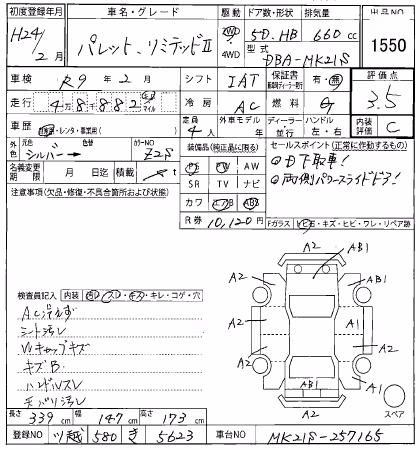 初度登録年月 車名・グレード 駆動 ドア数・形状 排気量 出品NO
H24/2月 パレット、リミテッドⅡ 2WD 4WD 5D.HB 660cc 1550
型式 DBA-MK21S
車検 R9年2月 シフト IAT 保証書 有・無 燃料 評価点 3.5
走行 48882 km マイル 冷房 AC
車歴 自家用・レンタ・事業用( ) 定員 4人 外車モデル年 ディーラー・並行 ハンドル 左・右 内装 C
外色 元色 シルバー 色替 カラーNO Z2S
装備品(純正品に限る) セールスポイント(正常に動作するもの)
名義変更期限 月 日迄 積載 t
PS PW AW ①D下取車!
SR TV ナビ ②両側パワースライドドア!
注意事項(欠品・修復・不具合箇所および状態)
カワ エアB ABS
R券 10,120円 Fガラス トビ石・キズ・ヒビ・ワレ・リペア跡
A2 AB1
A2 AB1
A2 A2
A2 A1
AB1 A2 スペア
A2
検査員記入 内装 汚D・スD・キス・キレ・コゲ・穴
AC冷えず
シート汚レ
Wキャップキズ
キズB
ハンドルスレ
天バリ汚レ
長さ 339cm 幅 147cm 高さ 173cm
登録NO 川越 580 き 5623 車台NO MK21S-257165